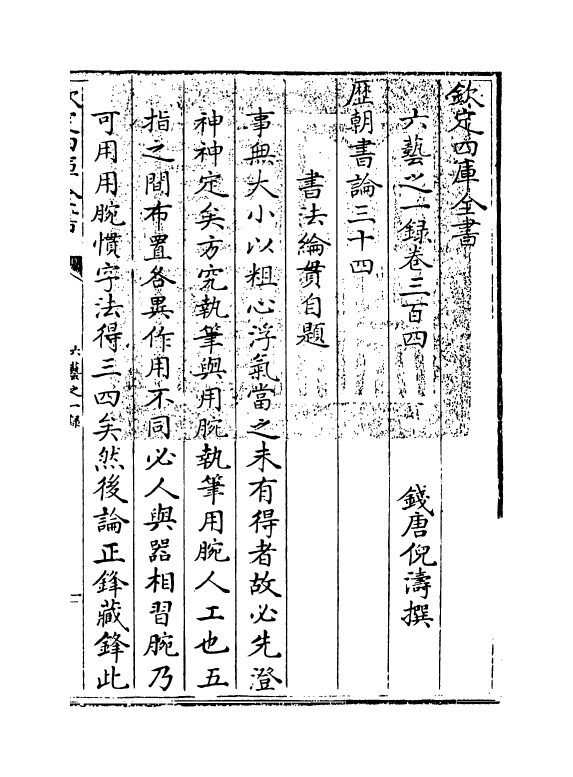 欽定四庫全書
六藝之一録卷三百四
錢唐倪濤撰
歴朝書論三十四
書法綸貫自題
事無大小以粗心浮氣當之未有得者故必先澄
神神定矣方究執筆與用腕執筆用腕人工也五
指之間布置各異作用不同必人與器相習腕乃
可用用腕慣字法得三四矣然後論正鋒藏鋒此
六藝之一録
一